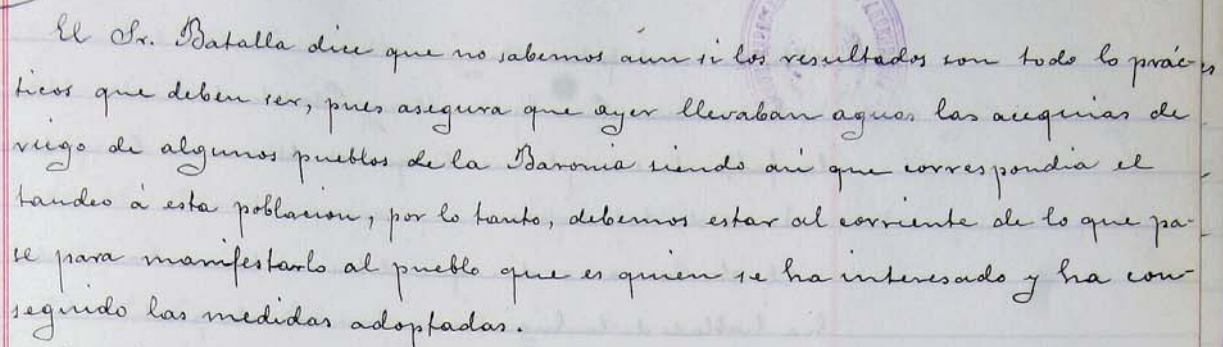 El Sr. Batalla dice que no sabemos aún si los resultados son todo lo prác-
ticos que deben ser, pues asegura que ayer llevaban aguas las acequias de
riego de algunos pueblos de la Baronia siendo asi que correspondia el
tandeo á esta poblacion, por lo tanto, debemos estar al corriente de lo que pa-
se para manifestarlo al pueblo que es quien se ha interesado y ha con-
seguido las medidas adoptadas.